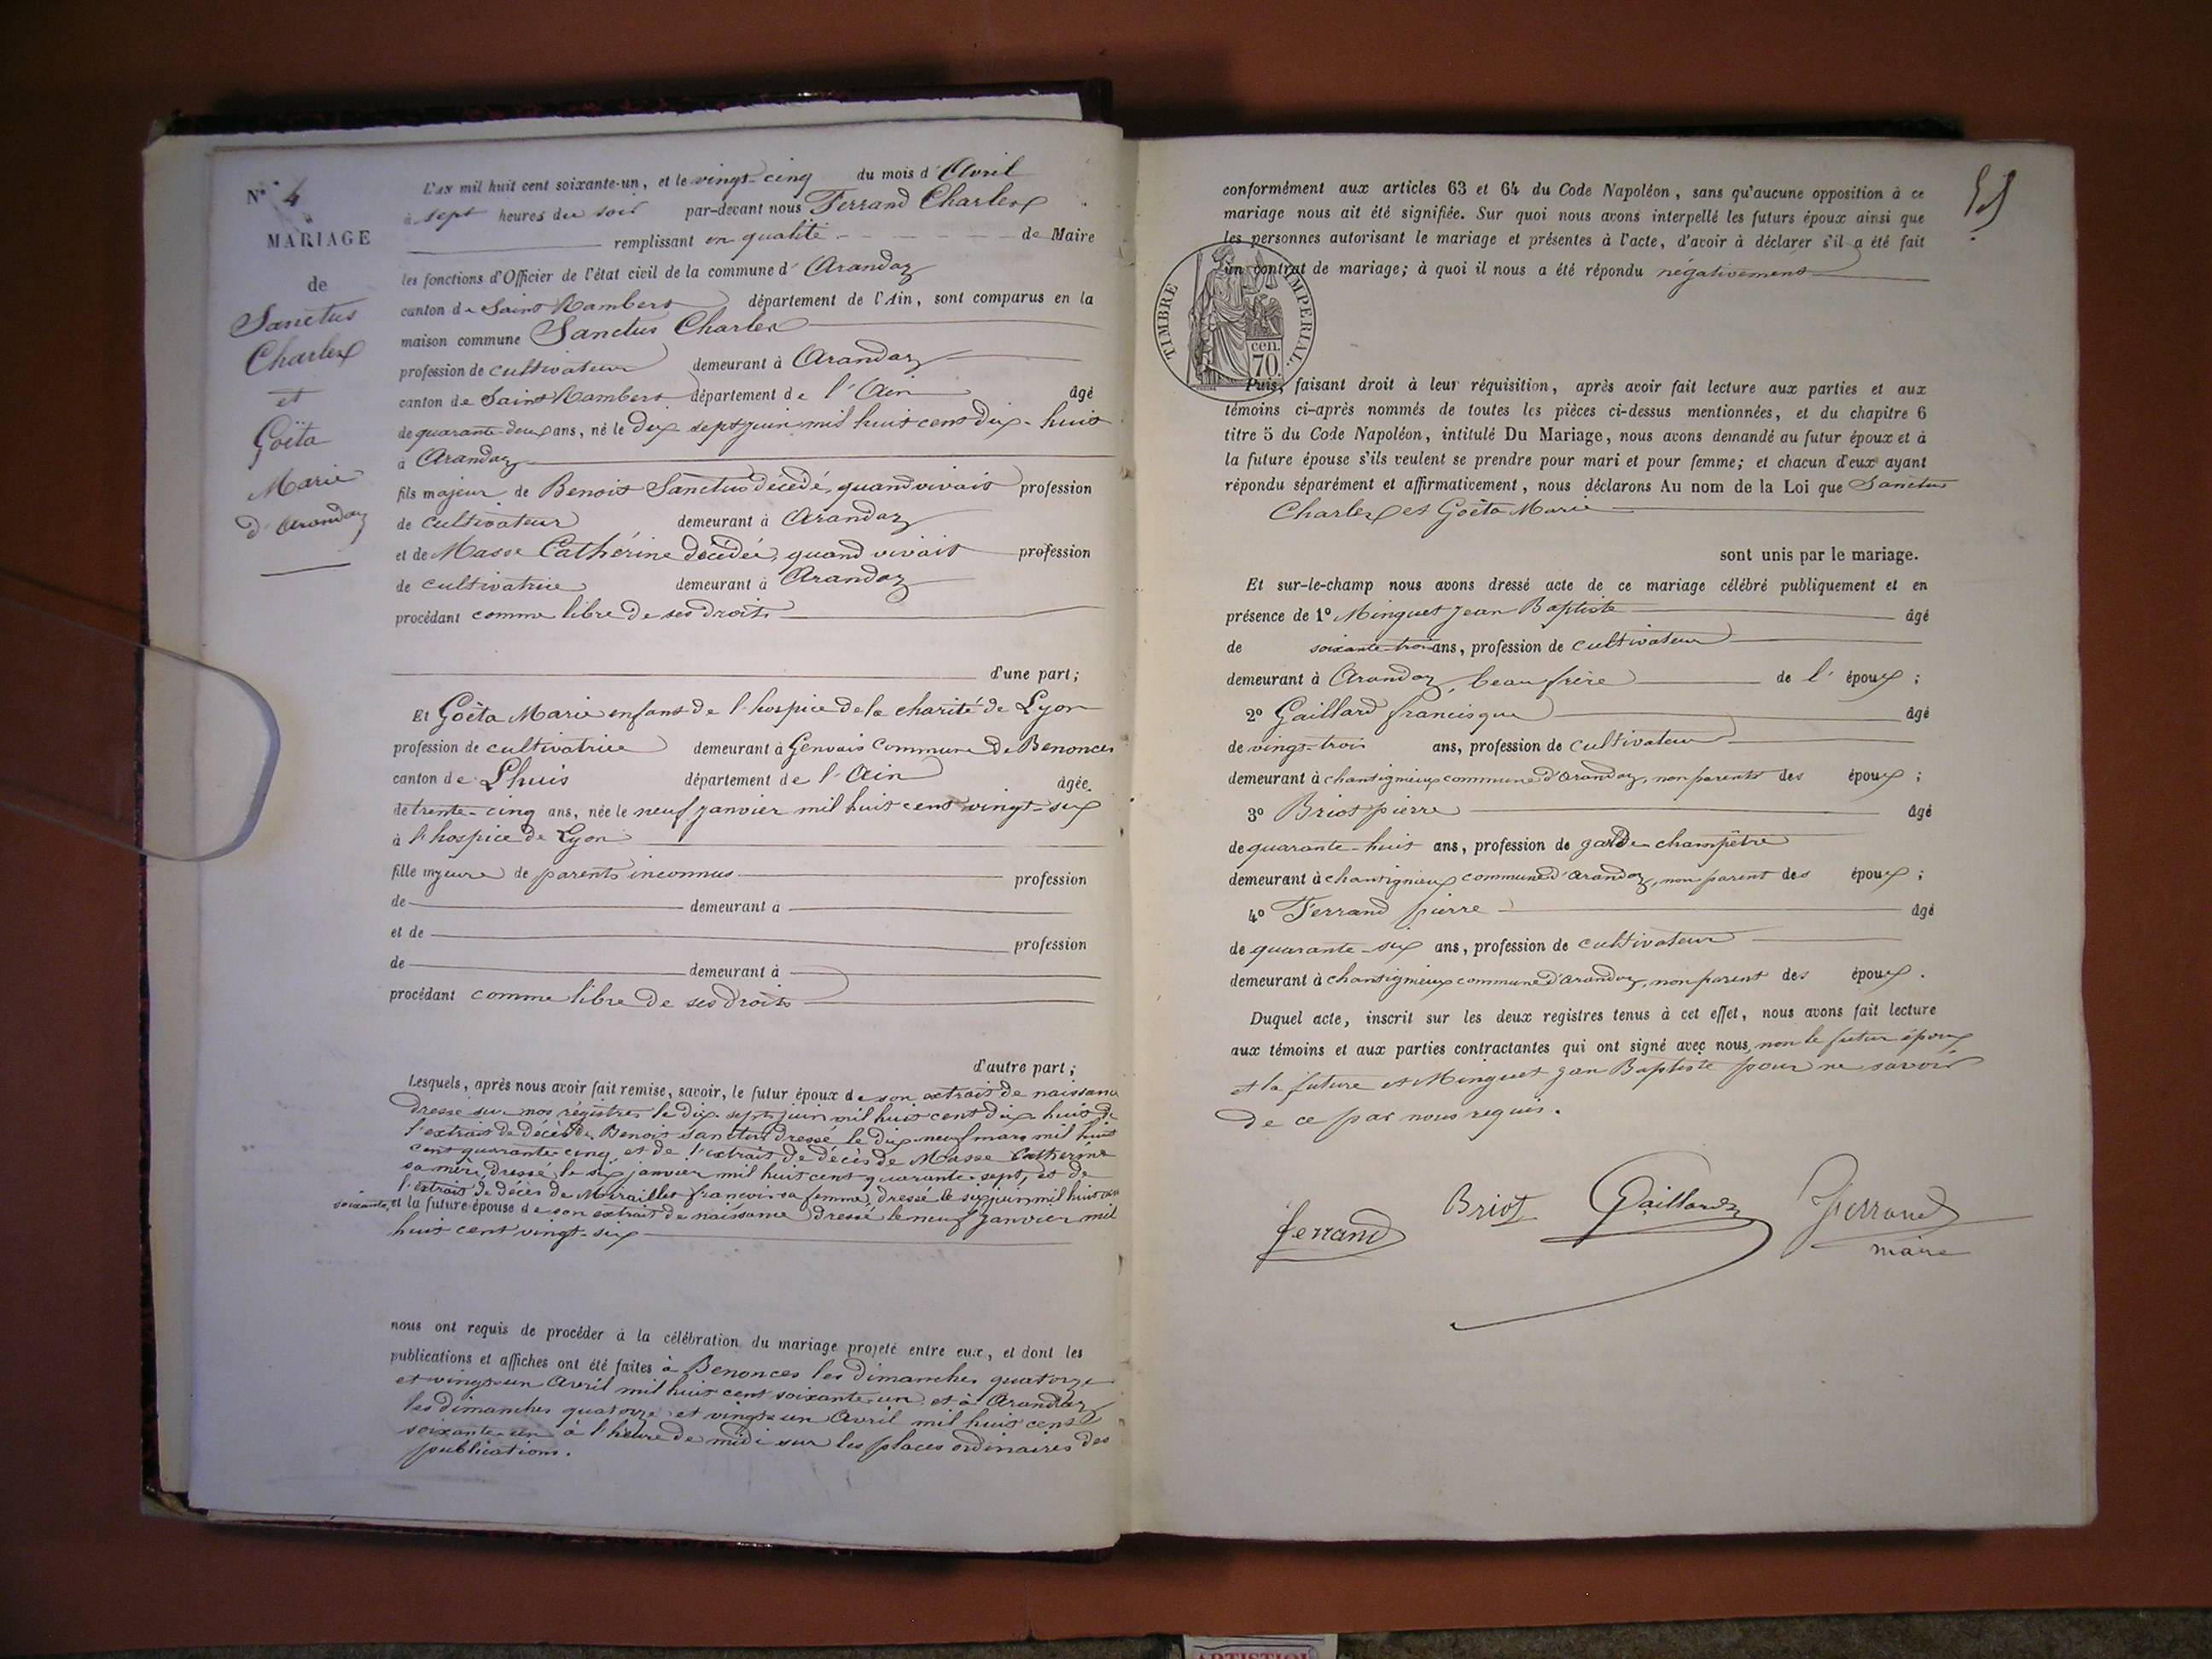 N° 4
MARIAGE
de
Sanctus
Charles
et
Goëta
Marie
d'Arandaz
L'AN mil huit cent soixante-un, et le vingt-cinq du mois d'Avril
à sept heures du soir par-devant nous Ferrand Charles
remplissant en qualité de Maire
les fonctions d'Officier de l'état civil de la commune d'Arandaz
canton de Saint Rambert département de l'Ain, sont comparus en la
maison commune Sanctus Charles
profession de cultivateur demeurant à Arandaz
canton de Saint Rambert département de l'Ain âgé
de quarante-deux ans, né le dix sept juin mil huit cent dix-huit
à Arandaz
fils majeur de Benoit Sanctus décédé, quand vivait profession
de cultivateur demeurant à Arandaz
et de Masse Cathérine décédée, quand vivait profession
de cultivatrice demeurant à Arandaz
procédant comme libre de ses droits
d'une part;
Et Goëta Marie enfant de l'hospice de la charité de Lyon
profession de cultivatrice demeurant à Genvais commune de Benonces
canton de Lhuis département de l'Ain âgée
de trente-cinq ans, née le neuf janvier mil huit cent vingt-six
à l'hospice de Lyon
fille majeure de parents inconnus profession
de demeurant à
et de profession
de demeurant à
procédant comme libre de ses droits
d'autre part;
Lesquels, après nous avoir fait remise, savoir, le futur époux de son extrait de naissance
dressé sur nos régistres le dix-sept juin mil huit cent dix-huit de
l'extrait de décès de Benoit Sanctus dressé le dix-neuf mars mil huit
cent quarante-cinq, et de l'extrait de décès de Masse Cathérine
sa mère, dressé le six janvier mil huit cent quarante-sept, et de
l'extrait de décès de françoise sa femme, dressé le six juin mil huit cent
soixante, et la future épouse de son extrait de naissance dressé le neuf janvier mil
huit cent vingt-six
nous ont requis de procéder à la célébration du mariage projeté entre eux, et dont les
publications et affiches ont été faites à Benonces les dimanches quatorze
et vingt-un Avril mil huit cent soixante-un et à Arandaz
les dimanches quatorze et vingt-un Avril mil huit cent
soixante-un à l'heure de midi sur les places ordinaires des
publications.
conformément aux articles 63 et 64 du Code Napoléon, sans qu'aucune opposition à ce
mariage nous ait été signifiée. Sur quoi nous avons interpellé les futurs époux ainsi que
les personnes autorisant le mariage et présentes à l'acte, d'avoir à déclarer s'il a été fait
un contrat de mariage; à quoi il nous a été répondu négativement
TIMBRE IMPERIAL.
cen.
70
Puis, faisant droit à leur réquisition, après avoir fait lecture aux parties et aux
témoins ci-après nommés de toutes les pièces ci-dessus mentionnées, et du chapitre 6
titre 5 du Code Napoléon, intitulé Du Mariage, nous avons demandé au futur époux et à
la future épouse s'ils veulent se prendre pour mari et pour femme; et chacun d'eux ayant
répondu séparément et affirmativement, nous déclarons Au nom de la Loi que Sanctus
Charles et Goëta Marie
sont unis par le mariage.
Et sur-le-champ nous avons dressé acte de ce mariage célébré publiquement et en
présence de 1° Minguet Jean Baptiste âgé
de soixante-trois ans, profession de cultivateur
demeurant à Arandaz, beau frère de l'époux;
2° Gaillard francisque âgé
de vingt-trois ans, profession de cultivateur
demeurant à chantignieux commune d'arandaz, non parents des époux;
3° Briot pierre âgé
de quarante-huit ans, profession de garde-champêtre
demeurant à chantignieux commune d'arandaz, non parent des époux;
4° Ferrand pierre âgé
de quarante-six ans, profession de cultivateur
demeurant à chantignieux commune d'arandaz, non parent des époux.
Duquel acte, inscrit sur les deux registres tenus à cet effet, nous avons fait lecture
aux témoins et aux parties contractantes qui ont signé avec nous, non le futur époux
et la future et Minguet jean Baptiste pour ne savoir
de ce par nous requis.
ferrand Briot Gaillard Ferrand
maire